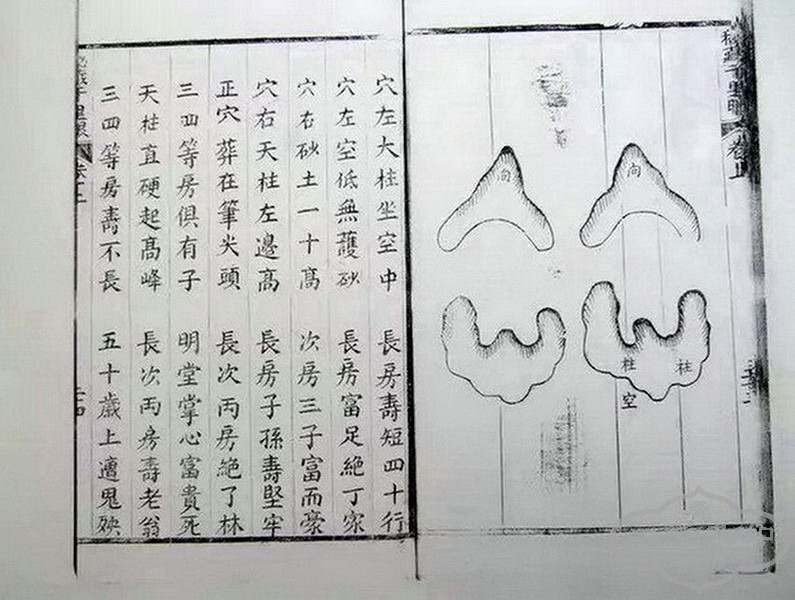 千里眼
卷上
向
向
柱
柱
空
穴左大柱坐空中 長房壽短四十行
穴左空低無護砂 長房富足絕丁家
穴右砂土一十高 次房三子富而豪
穴右天柱左邊高 長房子孫壽堅牢
正穴葬在筆尖頭 長次丙房絕了林
三四等房俱有子 明堂掌心富貴死
天柱直硬起高峰 長次丙房壽老翁
三四等房壽不長 五十歲上遭鬼殃